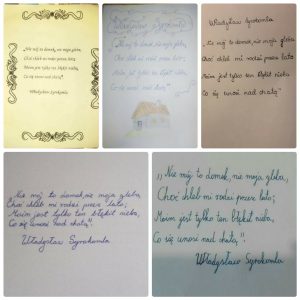 „Nie mój to domek, nie moja gleba,
Choć chleb mi rodzi przez lato;
Moim jest tylko ten błękit nieba,
Co się unosi nad chatą."
Władysław Syrokomla
Władysław Syrokomla
„Nie mój to domek, nie moja gleba,
Choć chleb mi rodzi przez lato;
Moim jest tylko ten błękit nieba,
Co się unosi nad chatą."
Władysław Syrokomla
„Nie mój to domek, nie moja gleba
Choć chleb mi rodzi przez lato;
Moim jest tylko ten błękit nieba,
Co się unosi nad chatą."
Nie mój to domek, nie moja gleba,
Choć chleb mi rodzi przez lato;
Moim jest tylko ten błękit nieba,
Co się unosi nad chatą.
Władysław Syrokomla
„Nie mój to domek, nie moja gleba,
Choć chleb mi rodzi przez lato;
Moim jest tylko ten błękit nieba,
Co się unosi nad chatą,".
Władysław Syrokomla